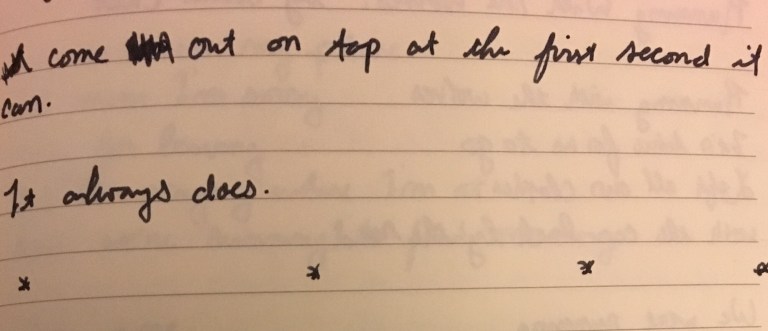 come out on top at the first second it
can.
It always does.
* * * *